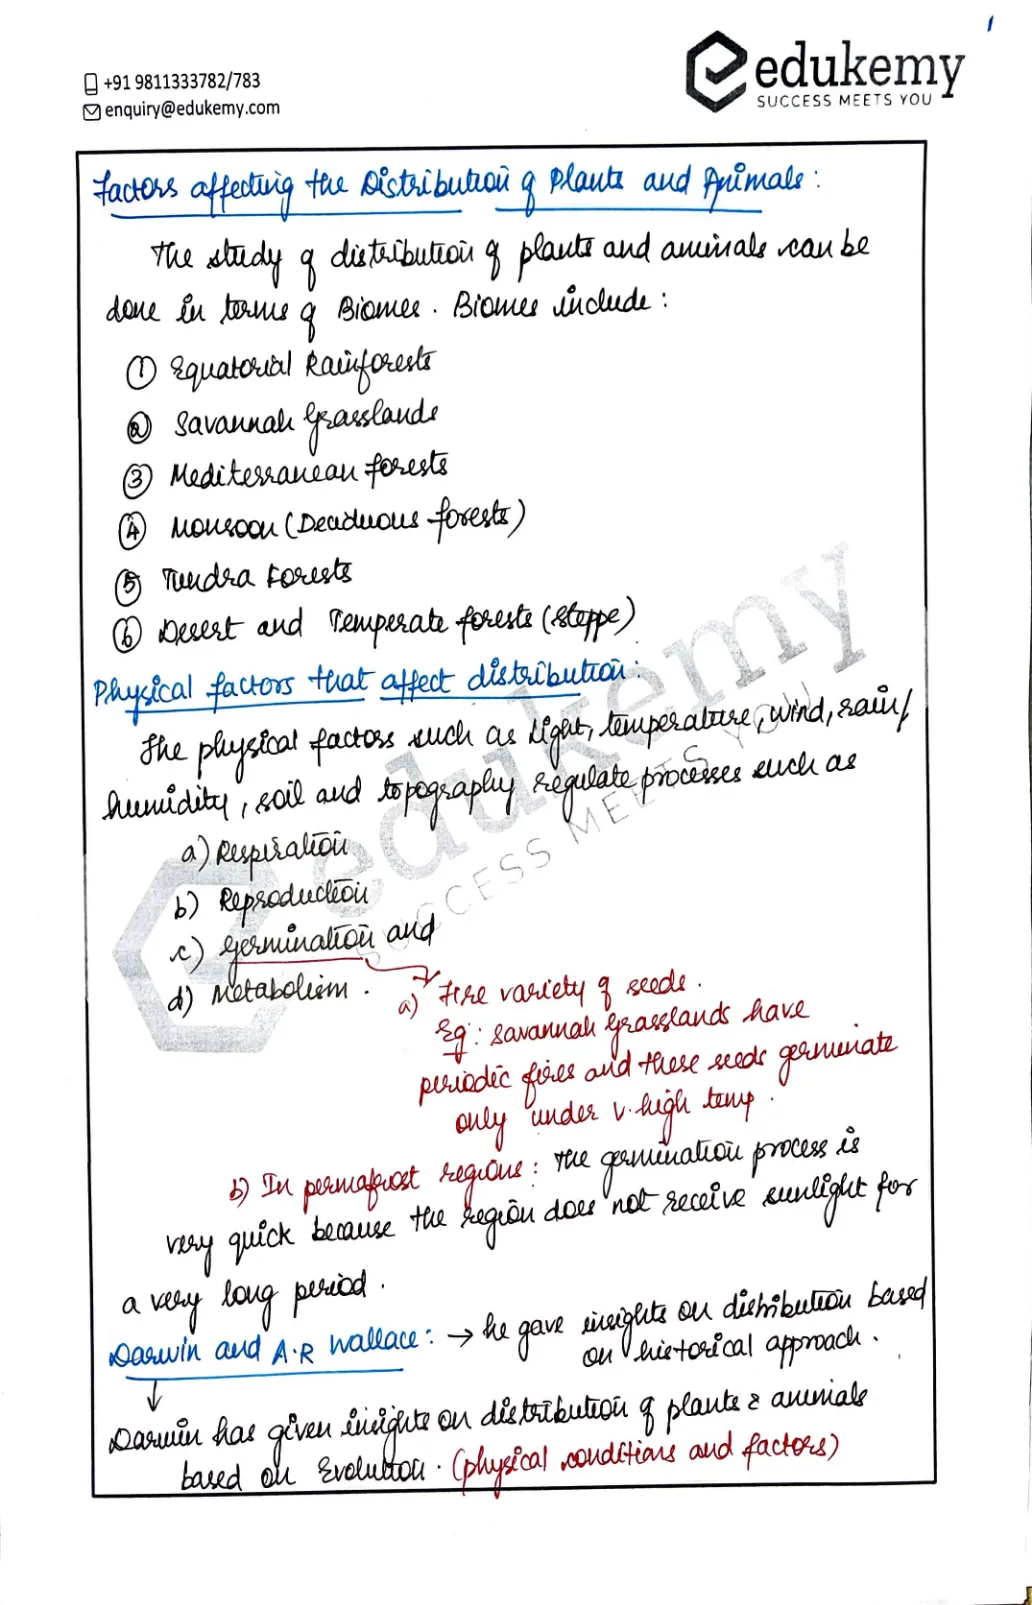 1
+91 9811333782/783
enquiry@edukemy.com
edukemy
SUCCESS MEETS YOU
Factors affecting the Distribution of Plants and Animals:
The study of distribution of plants and animals can be
done in terms of Biomes. Biomes include:
① Equatorial Rainforests
② Savannah Grasslands
③ Mediterranean forests
④ Monsoon (Deciduous forests)
⑤ Tundra Forests
⑥ Desert and Temperate forests (Steppe)
Physical factors that affect distribution:
The physical factors such as light, temperature, wind, rain/
humidity, soil and topography regulate processes such as
a) Respiration
b) Reproduction
c) Germination and
d) Metabolism.
a) Fire variety of seeds.
Eg: Savannah Grasslands have
periodic fires and these seeds germinate
only under v. high temp.
b) In permafrost regions: The germination process is
very quick because the region does not receive sunlight for
a very long period.
Darwin and A.R Wallace: → he gave insights on distribution based
on historical approach.
Darwin has given insights on distribution of plants & animals
based on Evolution. (physical conditions and factors)
edukemy
SUCCESS MEETS YOU